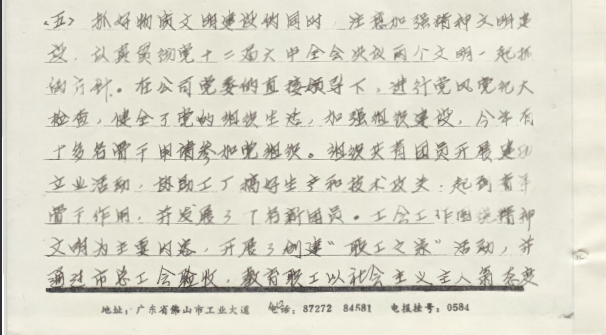 〈五〉抓好物质文明建设的同时，注意加强精神文明建
设，认真贯彻党十二届六中全会决议两个文明一起抓
的方针。在公司党委的直接领导下，进行党风党纪大
检查，健全了党的组织生活，加强组织建设，今年有
十多名骨干申请参加党组织。组织共青团员开展建功
立业活动，协助工厂搞好生产和技术攻关，起到青年
骨干作用，并发展了7名新团员。工会工作围绕精神
文明为主要内容，开展了创建“职工之家”活动，并
通过市总工会验收，教育职工以社会主义主人翁态度
地址：广东省佛山市工业大道 电话：87272 84581 电报挂号：0584